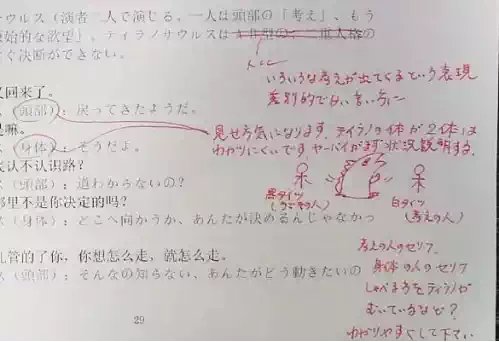 ウルス（演者二人で演じる。一人は頭部の「考え」、もう
始的な欲望」、ティラノサウルスは
ぐ決断ができない。
いろいろな考えが出てくるという表現
差別的でない言い方に
又回来了。
（頭部）：戻ってきたようだ。
是嘛。
（身体）：そうだよ。
見せ方気になります。ティラノの体が2体は
わかりにくいです。ヤーバイがまず状況説明する。
认不认识路？
ス（頭部）：道わからないの？
黒タイツ
白タイツ
（考えの人）
那里不是你决定的吗？
ス（身体）：どこへ向かうか、あんたが決めるんじゃなかっ
考えの人のセリフ
身体の人のセリフ
しゃべる方をティラノが
むいているなど？
わかりやすくして下さい
管的了你，你想怎么走，就怎么走。
ス（頭部）：そんなの知らない、あんたがどう動きたいの
29